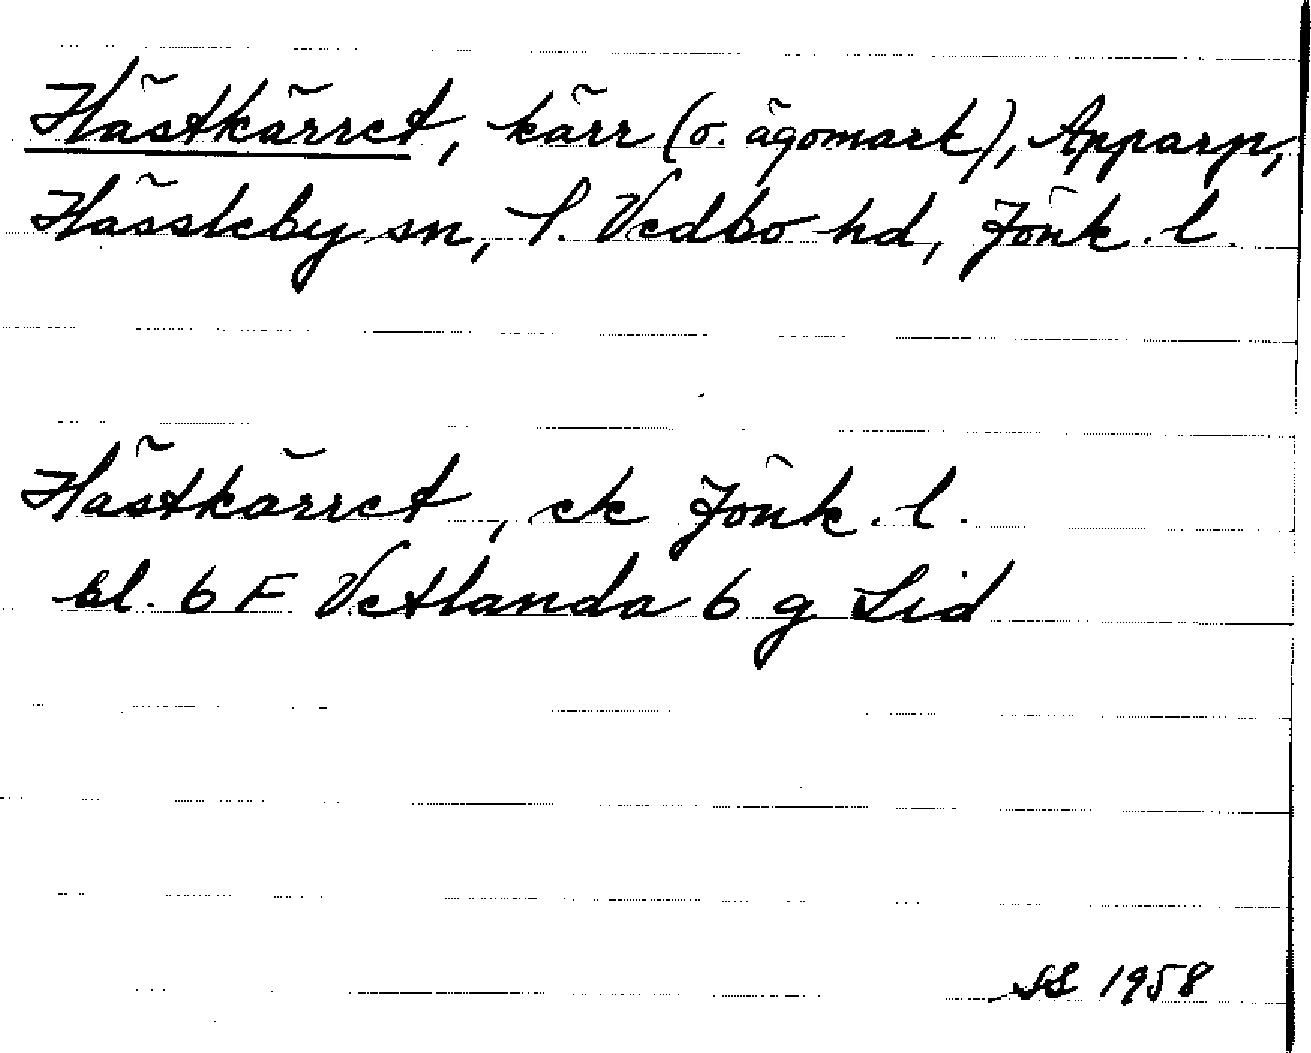 Hästkärret, kärr (o. ägomark), Apparp,
Hässleby sn, S. Vedbo hd, Jönk. l.
Hästkärret, ek Jönk. l.
bl. 6 F Vetlanda 6 g Lid
SS 1958